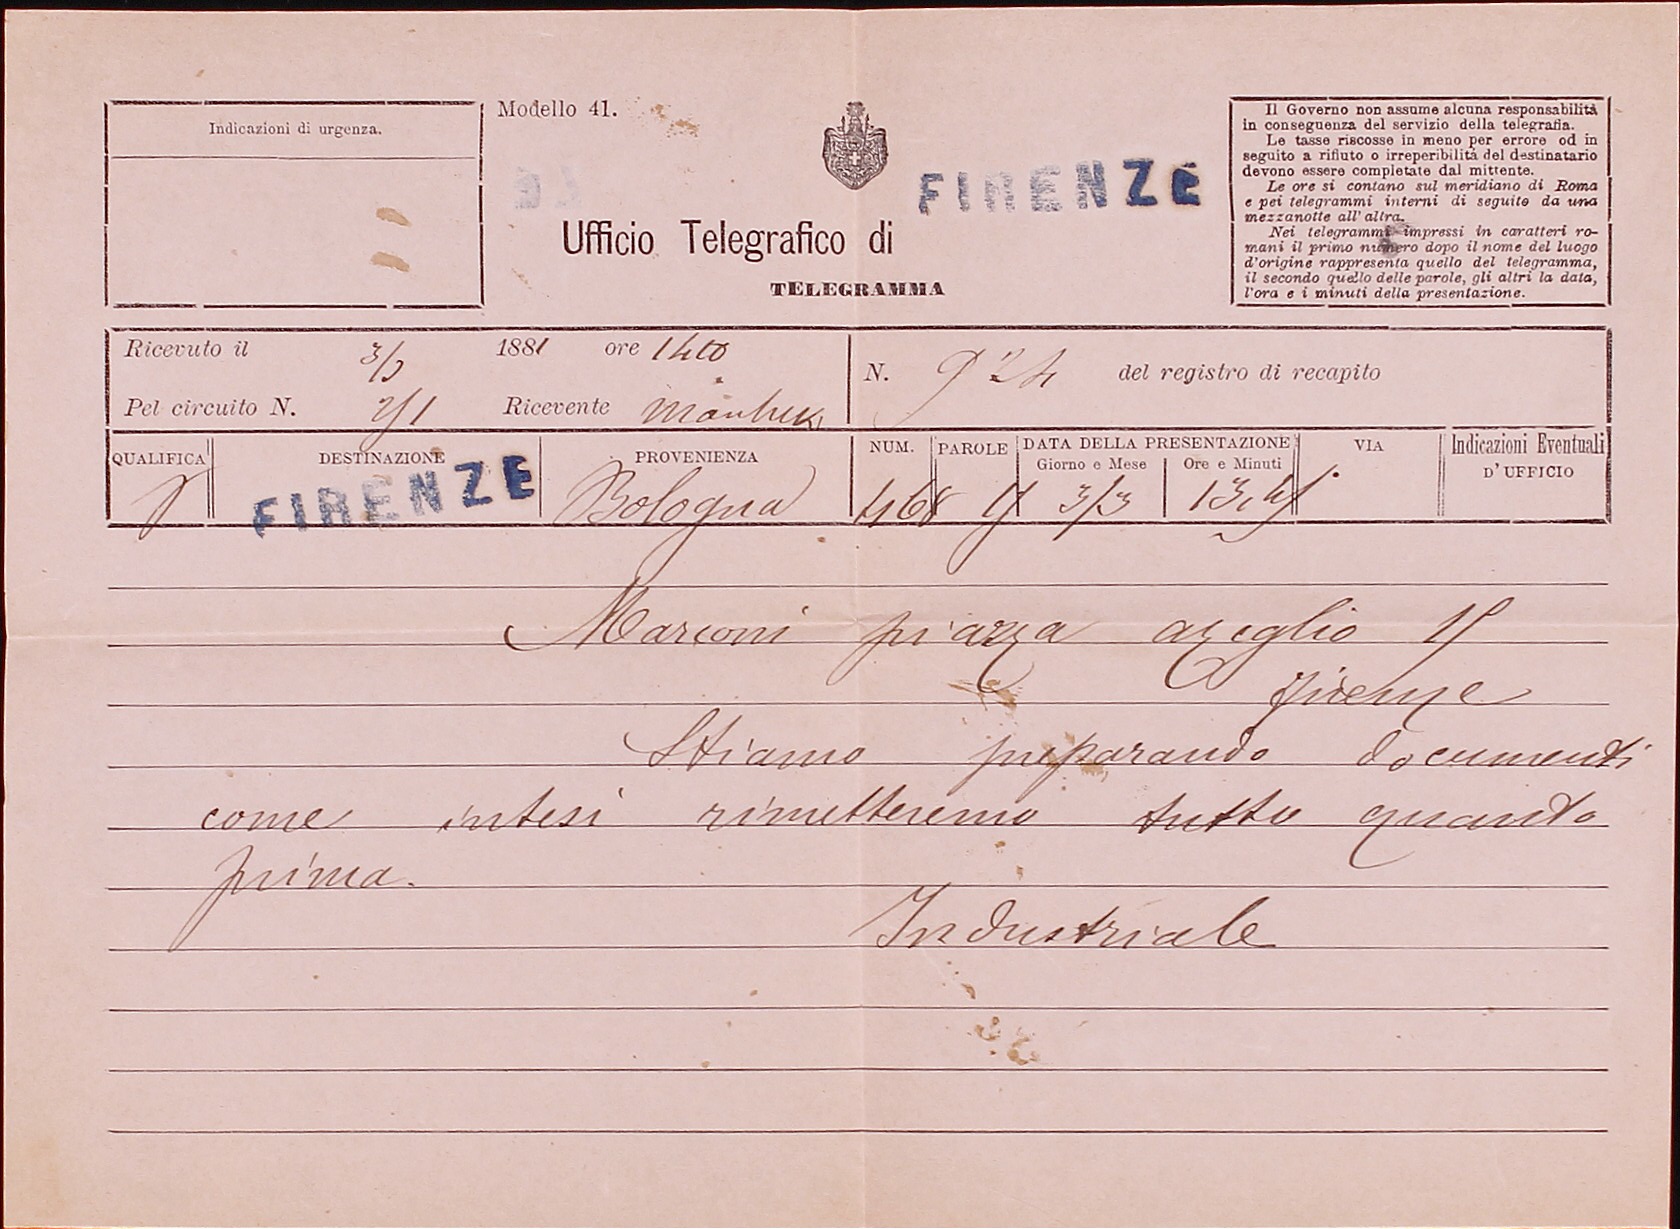 Indicazioni di urgenza.
Modello 41.
Il Governo non assume alcuna responsabilità
in conseguenza del servizio della telegrafia.
Le tasse riscosse in meno per errore od in
seguito a rifiuto o irreperibilità del destinatario
devono essere completate dal mittente.
Le ore si contano sul meridiano di Roma
e pei telegrammi interni di seguito da una
mezzanotte all'altra.
Nei telegrammi impressi in caratteri ro-
mani il primo numero dopo il nome del luogo
d'origine rappresenta quello del telegramma,
il secondo quello delle parole, gli altri la data,
l'ora e i minuti della presentazione.
Ufficio Telegrafico di FIRENZE
TELEGRAMMA
Ricevuto il 3/3 1881 ore
N. 924 del registro di recapito
Pel circuito N. Ricevente
QUALIFICA DESTINAZIONE PROVENIENZA NUM. PAROLE DATA DELLA PRESENTAZIONE VIA Indicazioni Eventuali
Giorno e Mese Ore e Minuti D'UFFICIO
FIRENZE Bologna 468 3/3
Marconi piazza azeglio
firenze
Stiamo preparando documenti
come intesi rimetteremo tutto quanto
prima.
Industriale